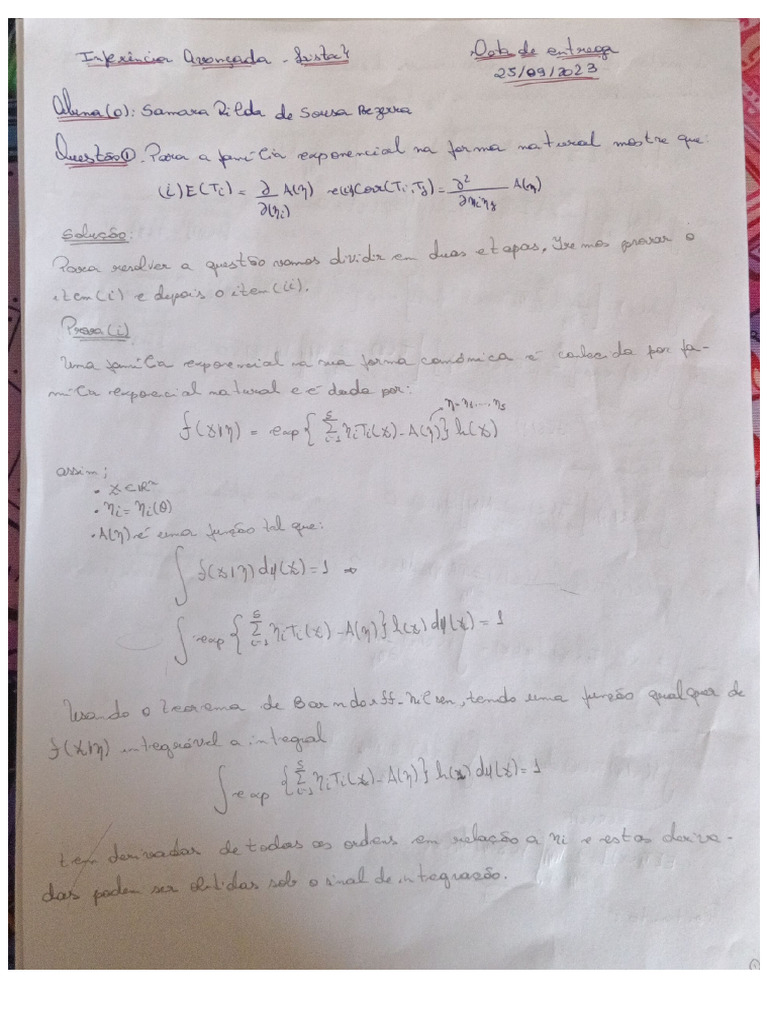 Inferência Avançada - Lista 4
Data de entrega
25/09/2023
Aluna(o): Samara Rilda de Sousa Bezerra
Questão ①. Para a família exponencial na forma natural mostre que:
(i) E(Ti) = ∂/∂(ηi) A(η) e (ii) Cov(Ti, Tj) = ∂²/∂ηiηj A(η)
Solução:
Para resolver a questão vamos dividir em duas etapas, Iremos provar o
item (i) e depois o item (ii).
Prova (i)
Uma família exponencial na sua forma canônica é conhecida por fa-
mília exponencial natural e é dada por:
η=η1,...,ηs
f(x|η) = exp{ Σ_{i=1}^{s} ηiTi(x) - A(η)} h(x)
assim;
• x ∈ IRⁿ
• ηi = ηi(θ)
• A(η) é uma função tal que:
∫ f(x|η) dμ(x) = 1 ⇒
∫ exp{ Σ_{i=1}^{s} ηiTi(x) - A(η)} h(x) dμ(x) = 1
Usando o teorema de Barndorff-Nilsen, tendo uma função qualquer de
f(x|η) integrável a integral
∫ exp { Σ_{i=1}^{s} ηiTi(x) - A(η)} h(x) dμ(x) = 1
tem derivadas de todas as ordens em relação a ηi e estas deriva-
das podem ser obtidas sob o sinal de integração.